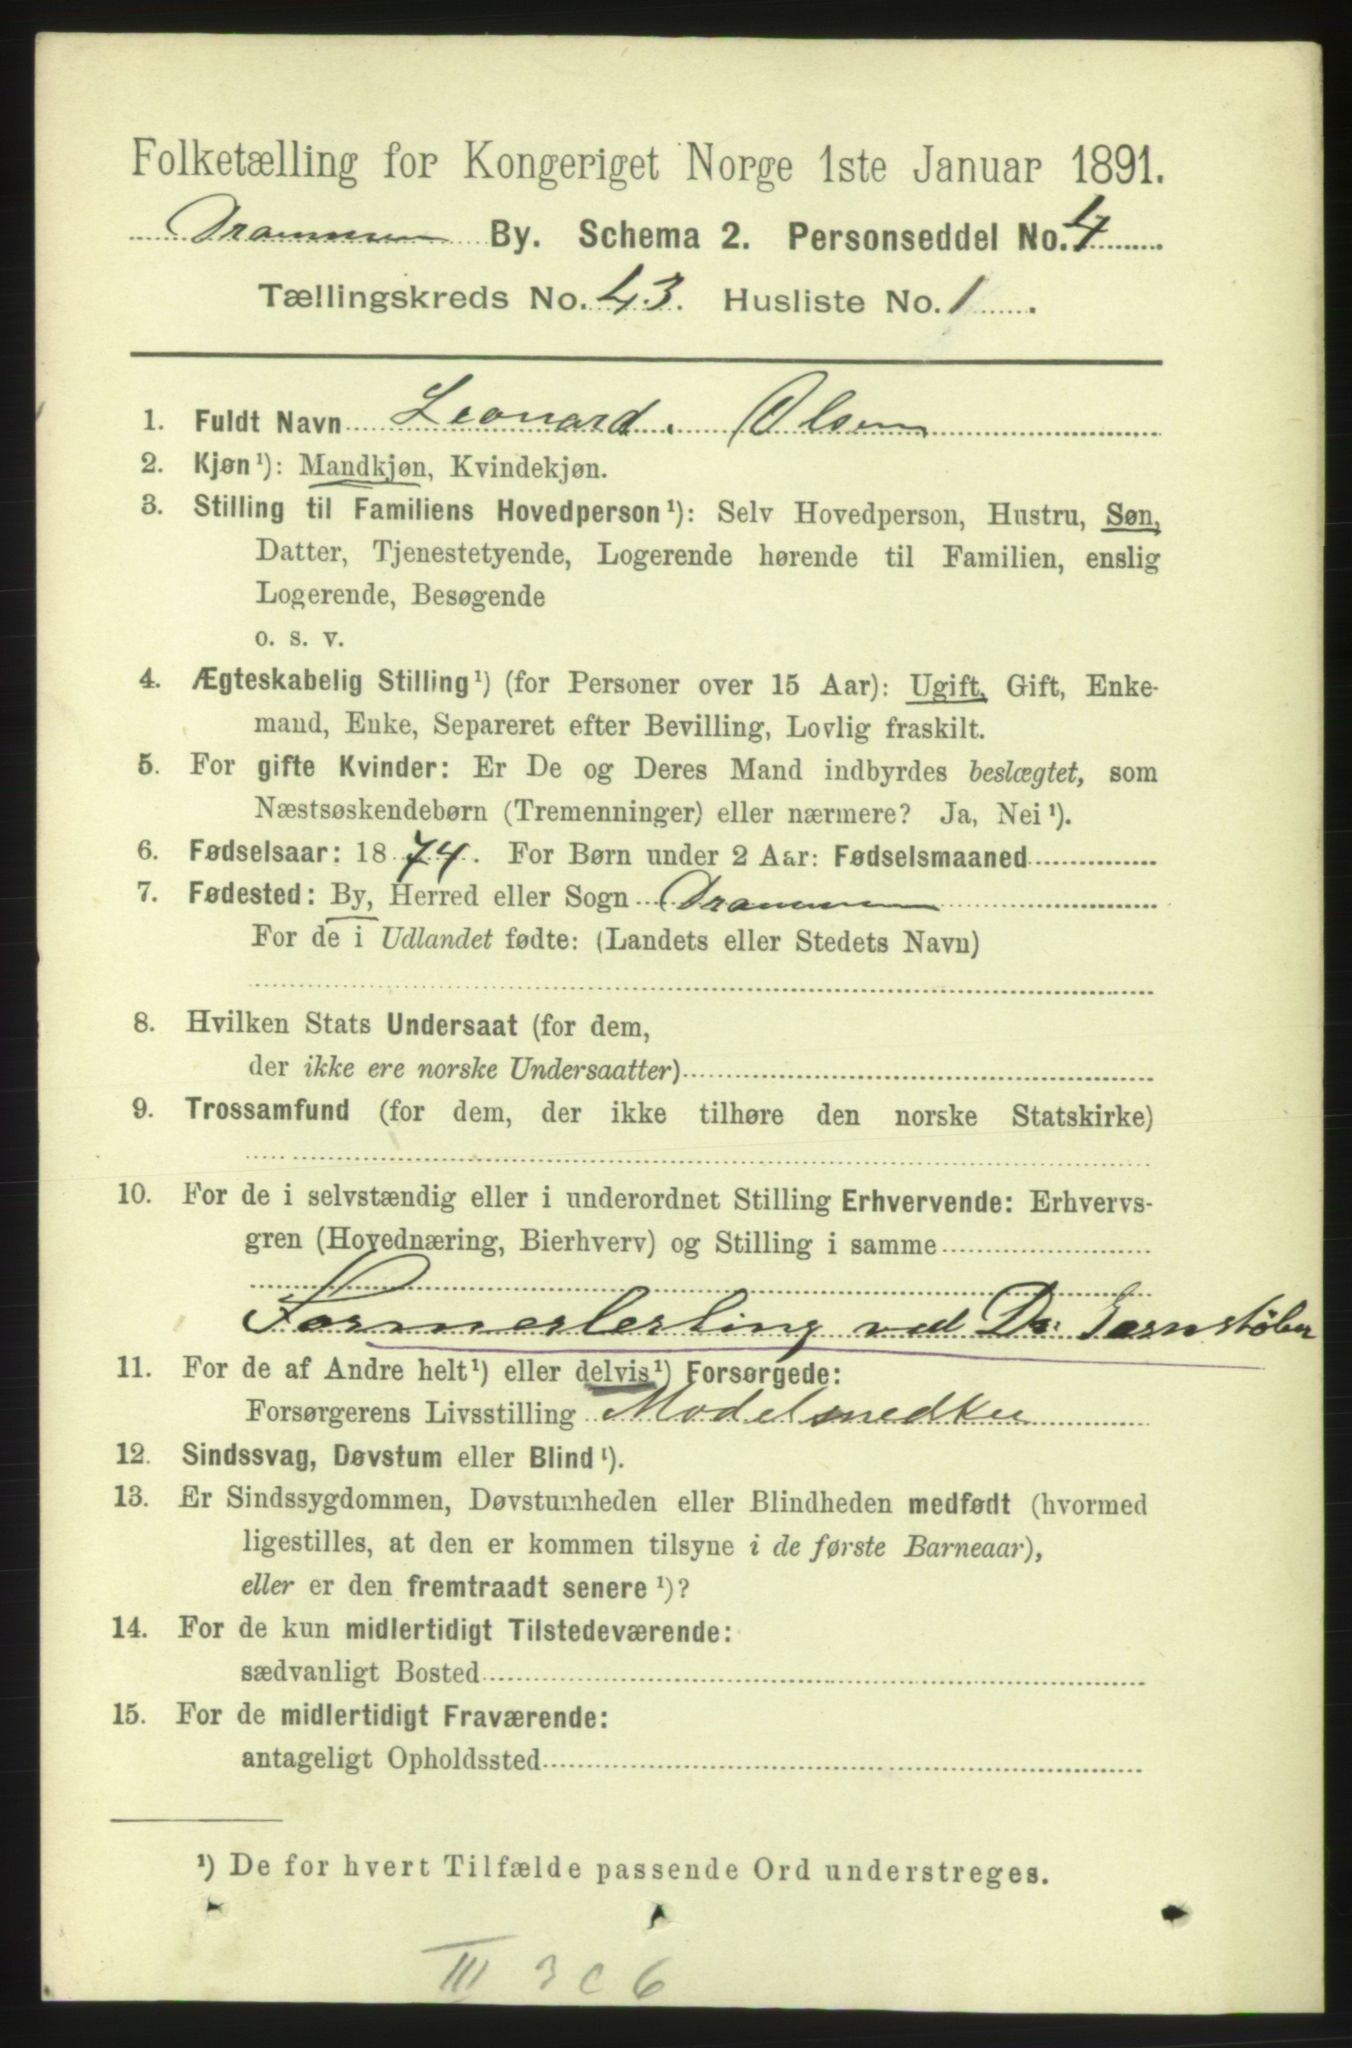 Folketælling for Kongeriget Norge 1ste Januar 1891.
Drammen By. Schema 2. Personseddel No. 4
Tællingskreds No. 43. Husliste No. 1.
1. Fuldt Navn Leonard. Olsen
2. Kjøn¹): Mandkjøn, Kvindekjøn.
3. Stilling til Familiens Hovedperson¹): Selv Hovedperson, Hustru, Søn,
Datter, Tjenestetyende, Logerende hørende til Familien, enslig
Logerende, Besøgende
o. s. v.
4. Ægteskabelig Stilling¹) (for Personer over 15 Aar): Ugift, Gift, Enke-
mand, Enke, Separeret efter Bevilling, Lovlig fraskilt.
5. For gifte Kvinder: Er De og Deres Mand indbyrdes beslægtet, som
Næstsøskendebørn (Tremenninger) eller nærmere? Ja, Nei¹).
6. Fødselsaar: 1874. For Børn under 2 Aar: Fødselsmaaned
7. Fødested: By, Herred eller Sogn Drammen
For de i Udlandet fødte: (Landets eller Stedets Navn)
8. Hvilken Stats Undersaat (for dem,
der ikke ere norske Undersaatter)
9. Trossamfund (for dem, der ikke tilhøre den norske Statskirke)
10. For de i selvstændig eller i underordnet Stilling Erhvervende: Erhvervs-
gren (Hovednæring, Bierhverv) og Stilling i samme
Formerlerling ved Dr. Jernstøberi
11. For de af Andre helt¹) eller delvis¹) Forsørgede:
Forsørgerens Livsstilling Modelsnedker
12. Sindssvag, Døvstum eller Blind¹).
13. Er Sindssygdommen, Døvstumheden eller Blindheden medfødt (hvormed
ligestilles, at den er kommen tilsyne i de første Barneaar),
eller er den fremtraadt senere¹)?
14. For de kun midlertidigt Tilstedeværende:
sædvanligt Bosted
15. For de midlertidigt Fraværende:
antageligt Opholdssted
¹) De for hvert Tilfælde passende Ord understreges.
III 3 c 6